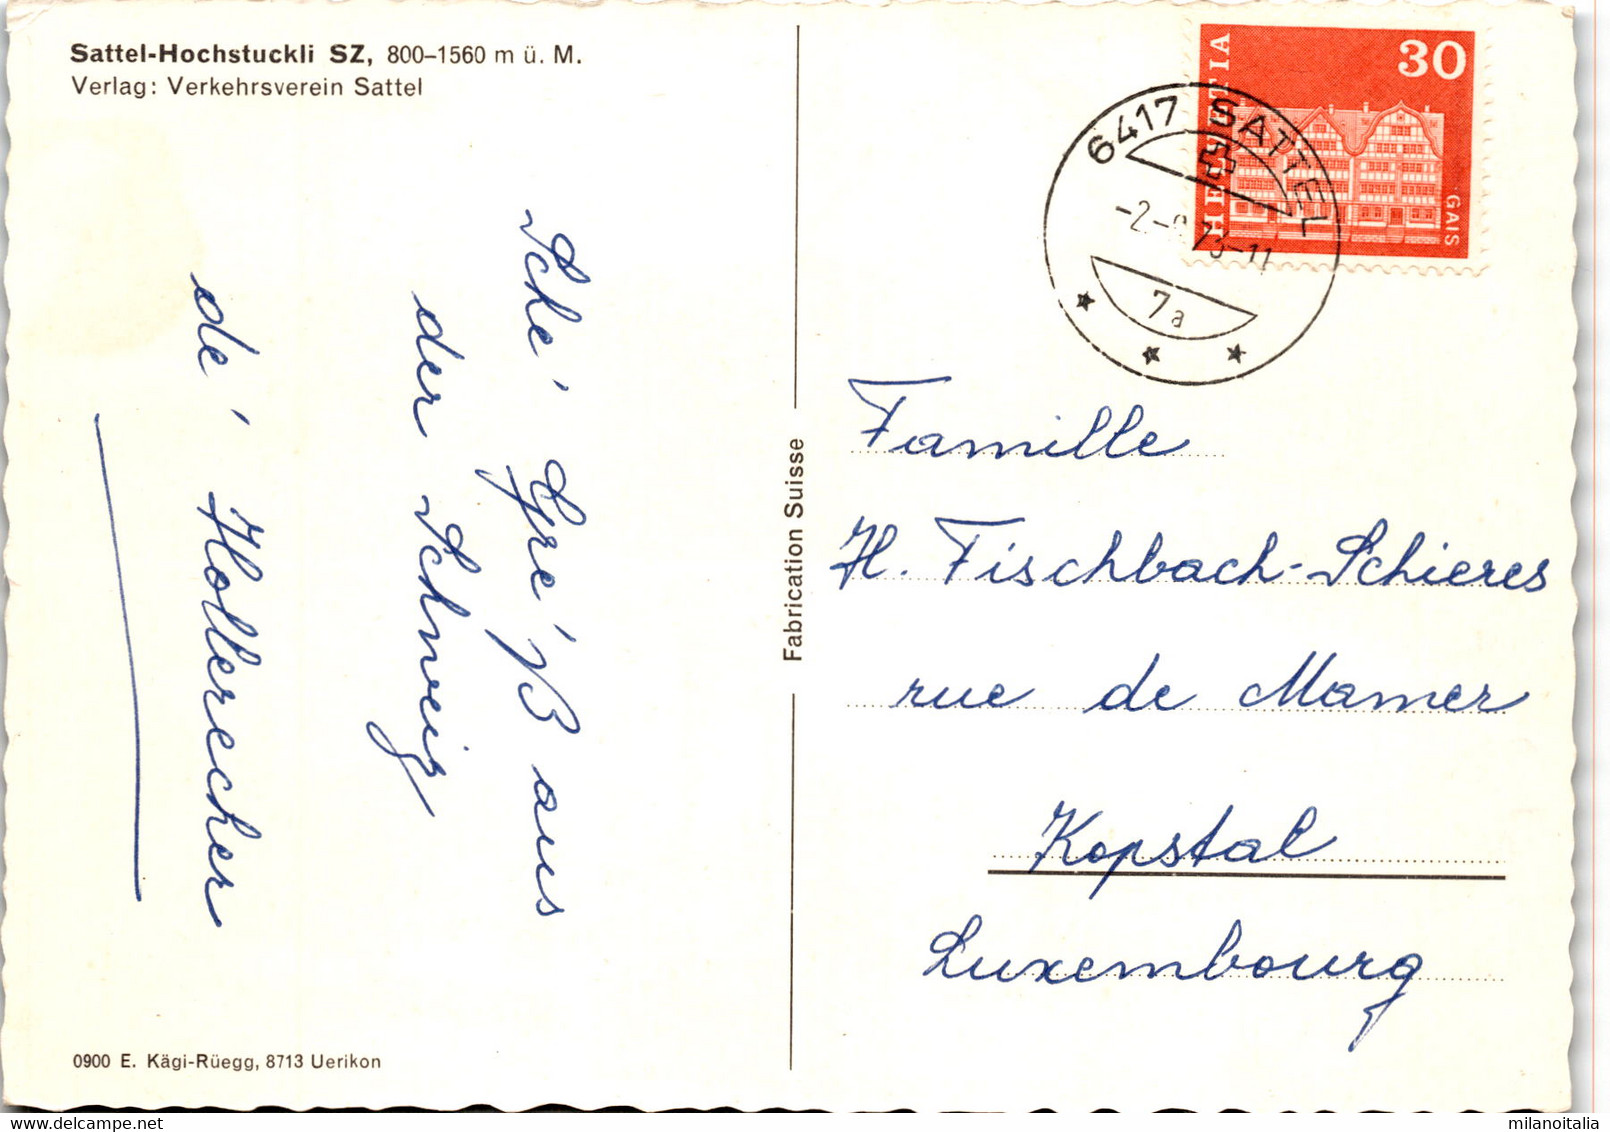 Sattel-Hochstuckli SZ, 800–1560 m ü. M.
Verlag: Verkehrsverein Sattel
Sché' Gré'ß aus
der Schweiz
dé' Hollerecher
0900 E. Kägi-Rüegg, 8713 Uerikon
Fabrication Suisse
HELVETIA
30
GAIS
6417 SATTEL
7a
Famille
H. Fischbach-Schieres
rue de Mamer
Kopstal
Luxembourg
milanoitalia